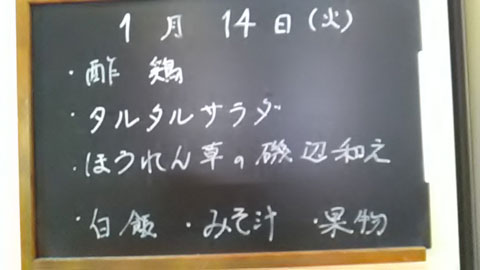 1月14日(火)
・酢鶏
・タルタルサラダ
・ほうれん草の磯辺和え
・白飯 ・みそ汁 ・果物